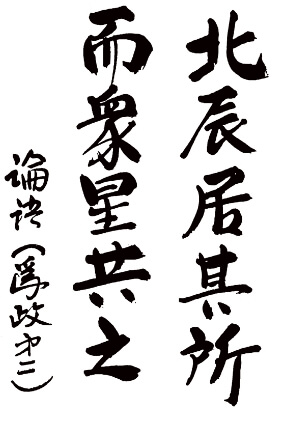 北辰居其所
而衆星共之
論語(為政第二)